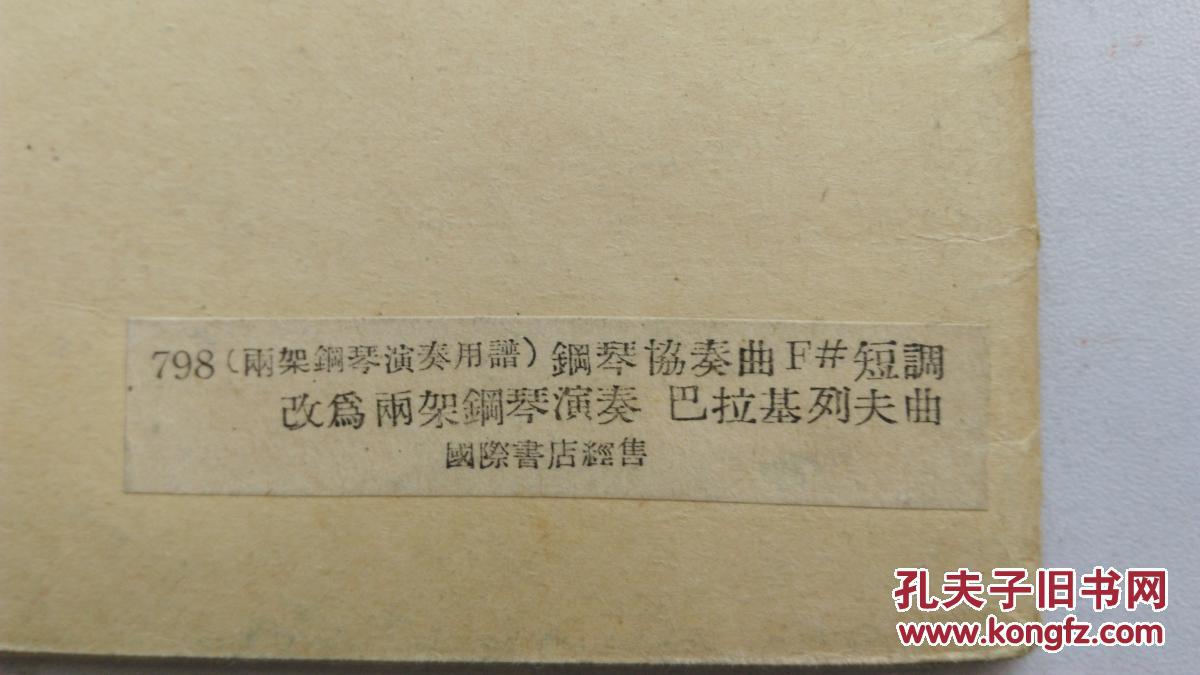 798（兩架鋼琴演奏用譜）鋼琴協奏曲F#短調
改爲兩架鋼琴演奏 巴拉基列夫曲
國際書店經售
孔夫子旧书网
www.kongfz.com